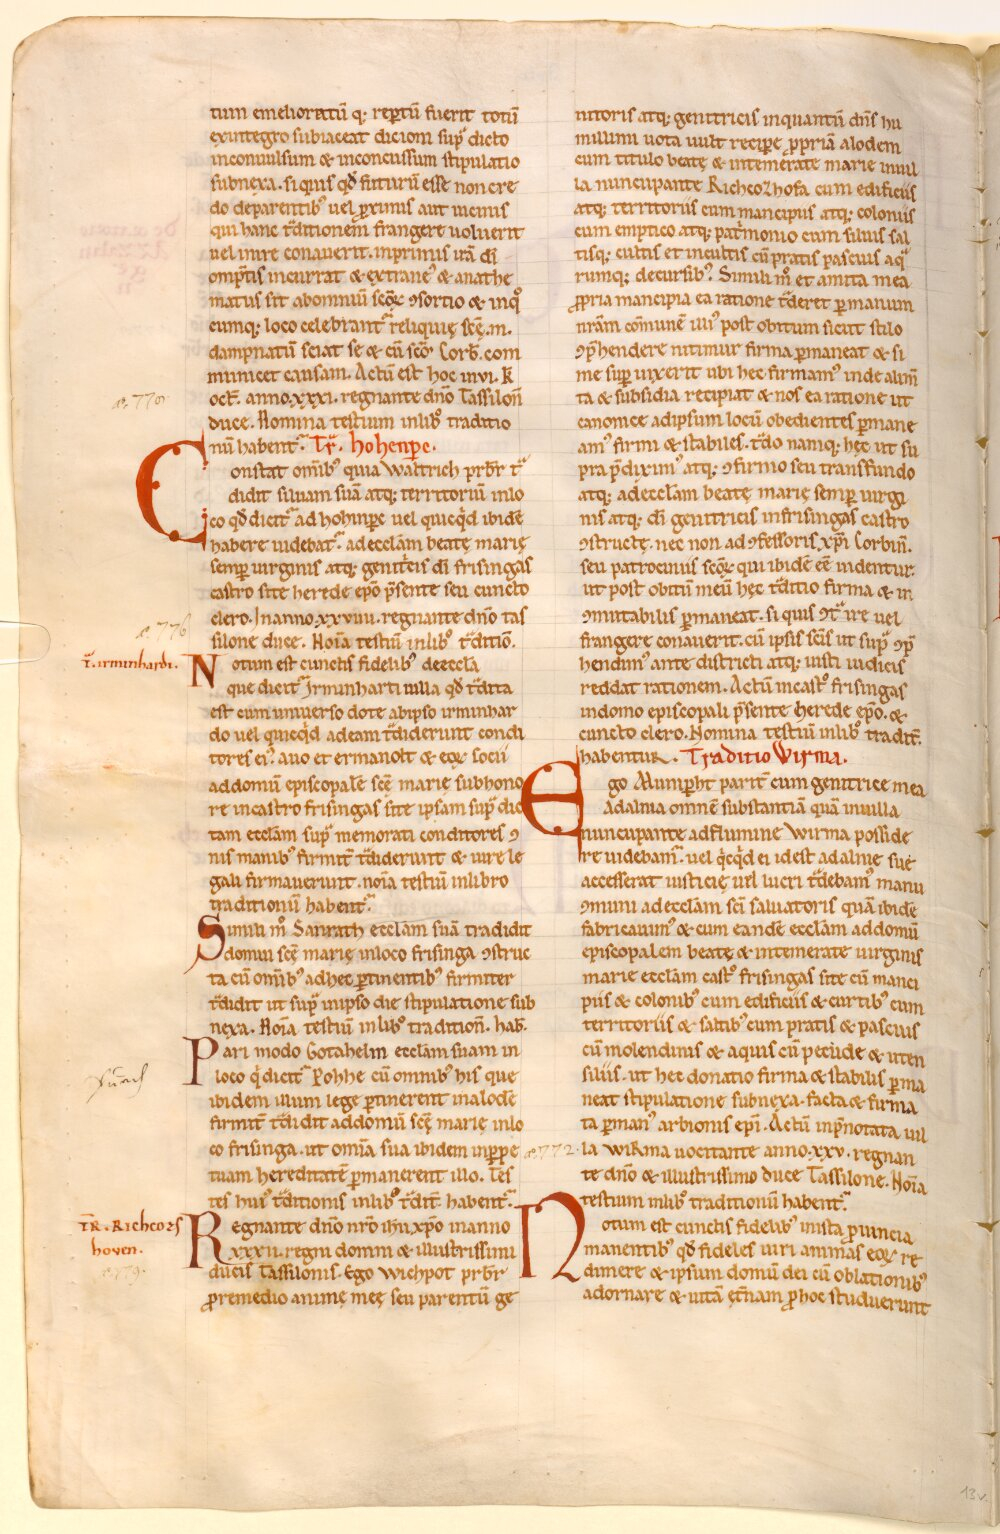 tum emelioratū q; reptū fuerit totū
exintegro subiaceat dicioni sup̄ dicto
inconuulsum & inconcussum stipulatio
subnexa. si quis qđ futurū esse non cre
do deparentib; uel ꝓximis aut uicinis
qui hanc tˀditionem frangere uoluerit
uel inire conauerit. inprimis irā dī
omp̄tis incurrat & extrane' & anathe
matus sit abomniū scōꝝ ꝯsortio & inq'
cumq; loco celebrantˀ reliquię scę. m.
dampnatū sciat se & cū scō Corb. com
municet causam. Actū est hoc in.vi. k
oct. anno.xxxi. regnante dn̄o Tassilon
duce. Nomina testium inlib' traditio
nū habentˀ. Tr̄. hohenpc.
Constat om̄ib; quia waltrich prb̄r tˀ
didit siluam suā atq; territoriū inlo
co qđ dicitˀ ad hohinpc uel quicqđ ibidē
habere uidebatˀ. adecclam beatę marię
semp uirginis atq; genitˀcis dī frisingas
castro site herede epō p̄sente seu cuncto
clero. In anno.xxviiii. regnante dn̄o tas
silone duce. Noīa testiū inlib' tˀditiō.
Notum est cunctis fidelib' deeccla
que dicitˀ Irminharti uilla qđ tˀdita
est cum uniuerso dote abipso irminhar
do uel quicqđ adeam tˀdiderunt condi
tores ei'. auo et ermanolt & eoꝝ socii
addomū episcopale scę marię subhono
re incastro frisingas site ipsam sup̄ dic
tam ecclam sup̄ memorati conditores ꝯ
nis manib' firmitˀ tˀdiderunt & iure le
gali firmauerunt. noīa testiū inlibro
traditionū habentˀ.
Simili m̊ Sanrath ecclam suā tradidit
domui scę marię inloco frisinga ꝯstruc
ta cū om̄ib' adhec ptinentib' firmiter
tˀdidit ut sup̄ inipso die stipulatione sub
nexa. Noīa testiū inlib' tradition. hab.
Pari modo Gotahelm ecclam suam in
loco q dicitˀ Pohhe cū omnib' his que
ibidem illum lege ptinerent inalodē
firmitˀ tˀdidit addomū scę marię inlo
co frisinga. ut omīa sua ibidem inppe
tuam hereditatē pmanerent illo. Tes
tes hui' tˀditionis inlib' tˀdit. habentˀ.
Regnante dn̄o nr̄o ihu xpo inanno
xxxii. regni domni & illustrissimi
ducis Tassilonis. Ego wichpot prb̄r
ꝓremedio anime meę seu parentū ge
aͦ. 770
aͦ. 776
t̄. irminhardi.
TR. Richcozs
hoven.
nitoris atq; genitricis inquantū dn̄s hu
millimi uota uult recipe ꝓpriā alodem
cum titulo beatę & intemerate marie inuil
la nuncupante Richcozhofa cum edificiis
atq; territoriis cum mancipiis atq; coloniis
cum emptico atq; patˀmonio cum siluis sal
tisq; cultis et incultis cū pratis pascuis aq̄
rumq; decursib'. Simili m̊ et amita mea
ꝓpria mancipia ea ratione tˀderet pmanum
nrām cōmunē illi' post obitum sicut stilo
ꝯp̄hendere nitimur firma pmaneat & si
me sup̄ uixerit ubi hec firmam' inde alim
ta & subsidia recipiat & nos ea ratione ut
canonice adipsum locū obedientes pmane
am' firmi & stabiles. tˀdo namq; hęc ut su
pra p̄dixim' atq; ꝯfirmo seu transfundo
atq; adecclam beatę marię semp uirgi
nis atq; dī genitricis infrisingas castro
ꝯstructę. nec non ad ꝯfessoris xpi Corbin.
seu patrociniis scōꝝ qui ibidē ēē uidentur.
ut post obitū meū hęc tˀditio firma & in
ꝯmutabilis pmaneat. si quis ꝯtˀ ire uel
frangere conauerit. cū ipsis scīs ut sup̄ ꝯp̄
hendim' ante districti atq; iusti iudicis
reddat rationem. Actū incastˀ frisingas
indomo episcopali p̄sente herede epō. &
cuncto clero. Nomina testiū inlib' tradit.
habentur. Traditio Wirma.
Ego Alunipht paritˀ cum genitrice mea
Adalnia omnē substantiā quā inuilla
nuncupante adflumine Wirma posside
re uidebamˀ. uel qcqđ ei idest adalnię suę
accesserat iusticię uel lucri tˀdebam' manu
ꝯmuni adecclam scī saluatoris quā ibidē
fabricauim' & cum eandē ecclam addomū
episcopalem beatę & intemerate uirginis
marie ecclam castˀ frisingas site cū manci
piis & colonib' cum edificiis & curtib' cum
territoriis & saltib' cum pratis & pascuis
cū molendinis & aquis cū pecude & uten
siliis. ut hec donatio firma & stabilis pma
neat stipulatione subnexa. facta & firma
ta pman' arbionis epī. Actū inp̄notata uil
la wiRma uocitante anno.xxv. regnan
te dn̄o & illustrissimo duce Tassilone. Noīa
testium inlib' traditionū habentˀ.
Notum est cunctis fidelib' inista ꝓuincia
manentib' qđ fideles uiri animas eoꝝ re
dimere & ipsum domū dei cū oblationib'
adornare & uitā etˀnam ꝓhoc studuerunt
aͦ. 772.
13v.